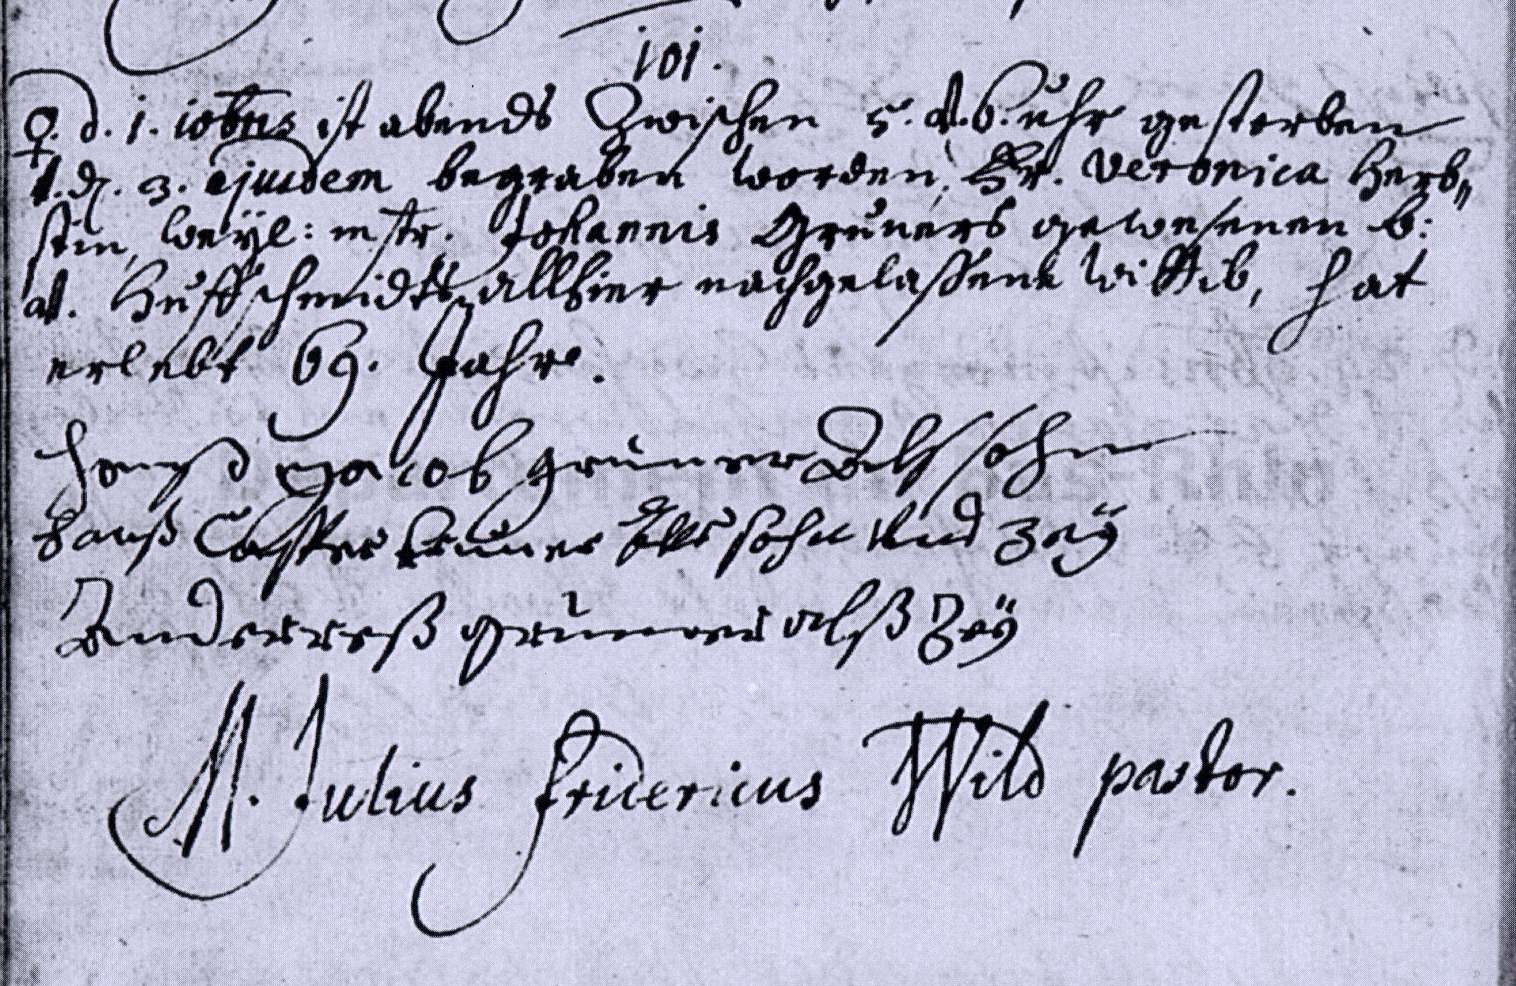 101.
♀. d. 1. iobris ist abends Zwischen 5. u. 6. uhr gestorben
u. d. 3. ejusdem begraben worden, Fr. Veronica Herb„
stin, weyl: mstr. Johannis Gruners gewesenen b:
u. Huffschmidts allhier nachgelaßene wittib, hat
erlebt 69. Jahr.
Hanß Jacob gruner Alß sohn
Hanß Casper gruner Alß sohn und Zeÿ
Andereß gruner alß Zeÿ
M. Julius Fridericus Wild pastor.